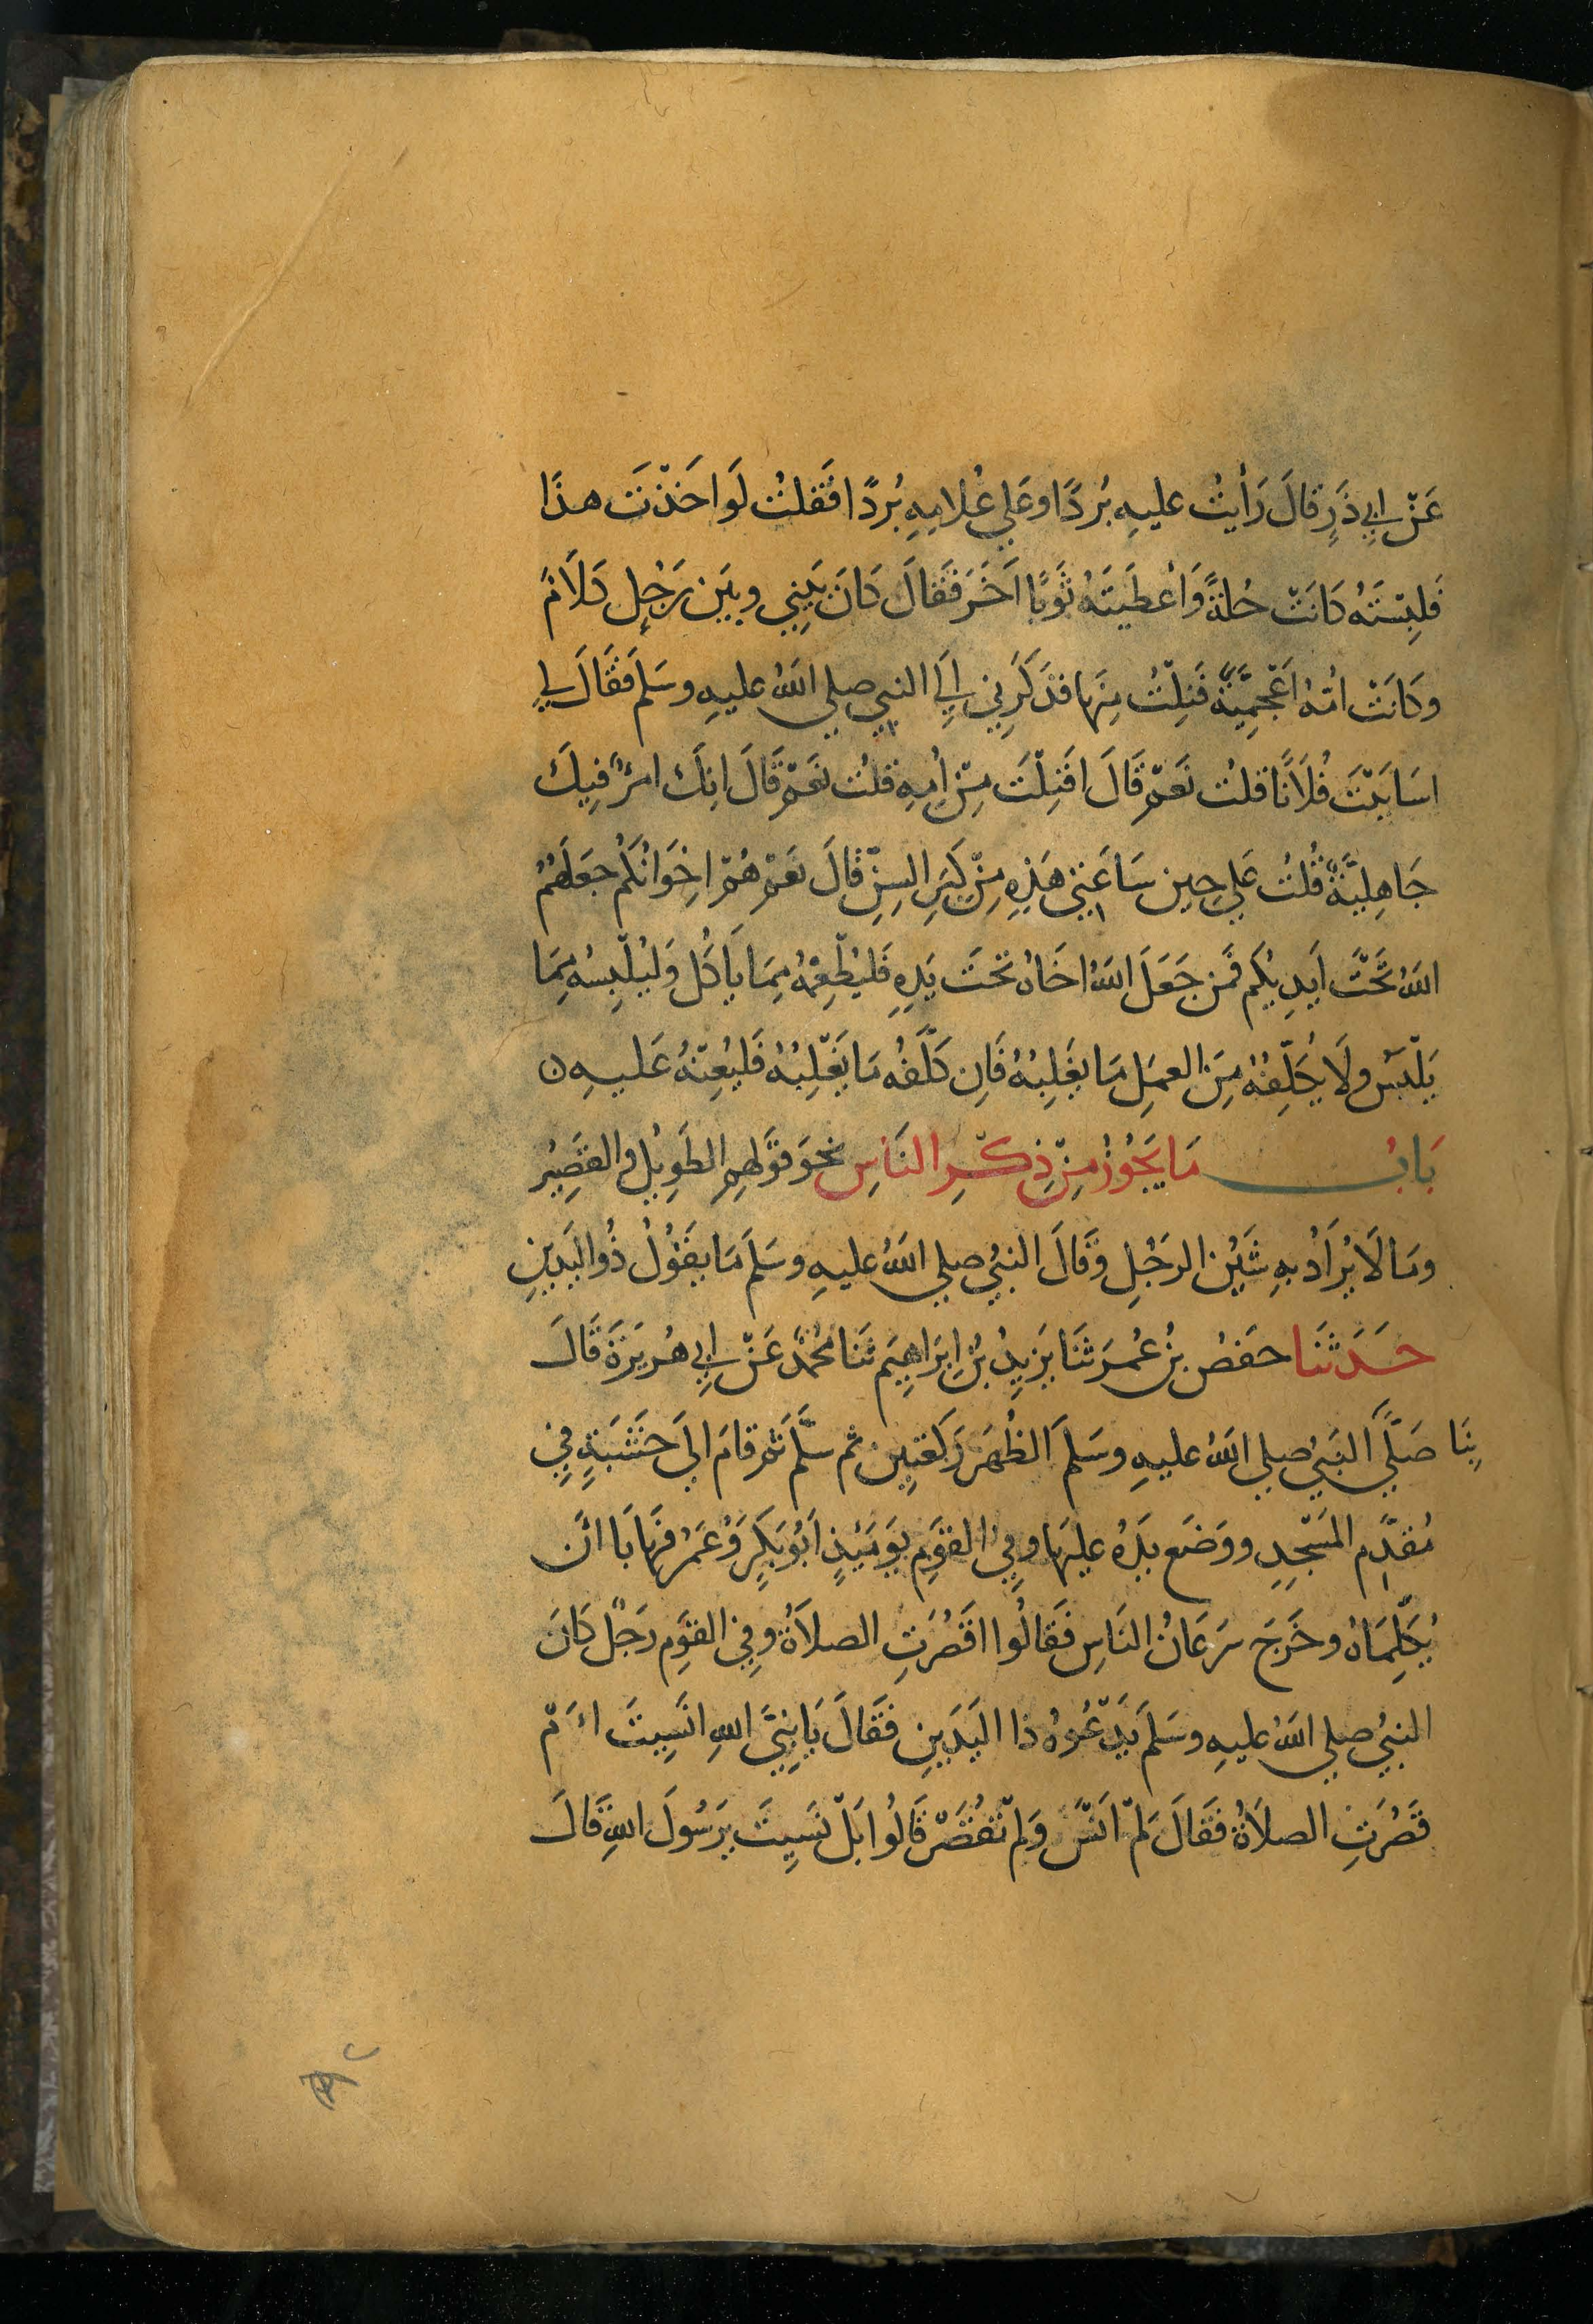 عَنْ ابِي ذَرٍ قالَ رَأيتُ عليهِ بُردًا وعَلي غُلامِهِ بُردًا فَقلتُ لَو اخَذْتَ هذا
فَلبِسْتَهُ كانَتْ حُلةً وَاَعْطَيتَهُ ثَوبًا اَخَرَ فَقَالَ كانَ بَينِي وبَين رَجُلٍ كَلَامٌ
وكَانَتْ امُّهُ اَعْجَمِيَّةً فَنِلْتُ مِنهَا فذَكَرَنِي اِلَي النبيِ صلي اللهُ عليهِ وسَلمَ فَقَالَ لِي
اسَابَبْتَ فُلَانًا قلتُ نَعَمْ قَالَ افَنِلْتَ مِنْ اُمِهِ قلتُ نعَمْ قَالَ انِكَ امرُؤٌ فِيكَ
جَاهِليَّةٌ قُلتُ عَلي حِين سَاعَتِي هَذِهِ مِنْ كِبَرِ السِنِّ قالَ نعَمْ هُمْ اخِوَانُكُمْ جَعَلَهُمُ
اللهُ تَحْتَ اَيدِيكُم فمَن جَعَلَ اللهُ اخَاهُ تحتَ يَدِهِ فَليُطْعِمْهُ مِمَا يَاكُل وَليُلْبِسهُ مِمَا
يَلْبَسُ ولَا يُكَلِّفْهُ مِنَ العمَلِ مَا يغَلِبُهُ فَاِن كَلَّفهُ مَا يَغْلِبُهُ فَليُعِنْهُ عَليهِ ن
بَابُ مَا يَجُوزُ مِنْ ذِكْرِ النَاسِ نحوَ قَولِهِمِ الطَوِيلُ والقَصِيرُ
ومَا لَا يُرَادُ بهِ شَيْنُ الرجُلِ وقَالَ النبيُ صلي اللهُ عليهِ وسَلمَ مَا يقَولُ ذُو اليَدَينِ
حَدَثَنَا حفصُ بنُ عُمرَ ثنَا يزِيدُ بنُ ابِرَاهِيَم ثنَا مُحمَّدٌ عَنْ ابِي هُريَرَةَ قَالَ
بِنَا صَلَّي النبَيُ صلي اللهُ عليهِ وسَلمَ الظُهرَ رَكعَتِين ثم سَلَّمَ ثمَ قامَ الَي خَشَبَةٍ فِي
مُقدَّمِ المَسْجِدِ ووَضَع يَدَهُ عليهَا وفِي القَومِ يَومَئِذٍ اَبُو بَكرٍ وَعُمَرُ فهَابَا انَ
يُكَلِّمَاهُ وخَرجَ سَرَعَانُ النَاسِ فَقَالُوا اقَصُرَتِ الصلاَةُ وفِي القَومِ رَجُلٌ كانَ
النبيُ صلي اللهُ عليهِ وسَلمَ يَدْعُوهُ ذا اليَدَينِ فَقَالَ يَا نبِيَّ اللهِ انَسِيتَ اَمْ
قَصُرَتِ الصلَاةُ فَقَالَ لَمْ انَسَ وَلمْ تقُصَرْ قَالُوا بَلْ نَسِيتَ يرَسُولَ اللهِ قَالَ